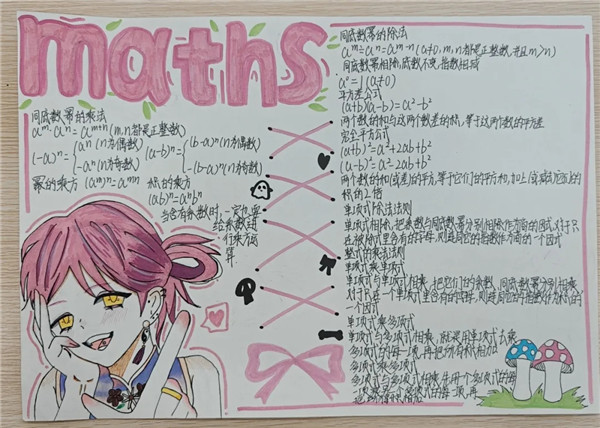 maths
同底数幂的乘法
aᵐ·aⁿ=aᵐ⁺ⁿ(m,n都是正整数)
(-a)ⁿ={aⁿ(n为偶数) (a-b)ⁿ={(b-a)ⁿ(n为偶数)
-aⁿ(n为奇数) -(b-a)ⁿ(n为奇数)
幂的乘方 (aᵐ)ⁿ=aᵐⁿ 积的乘方
(ab)ⁿ=aⁿbⁿ
当含有系数时,一定也要
给系数进
行乘方运
算
同底数幂的除法
aᵐ÷aⁿ=aᵐ⁻ⁿ(a≠0,m,n都是正整数,并且m>n)
同底数幂相除,底数不变,指数相减
a⁰=1(a≠0)
平方差公式
(a+b)(a-b)=a²-b²
两个数的和与这两个数差的积,等于这两个数的平方差
完全平方公式
(a+b)²=a²+2ab+b²
(a-b)²=a²-2ab+b²
两个数的和(或差)的平方,等于它们的平方和,加上(或减去)它们的
积的2倍
单项式除法法则
单项式相除,把系数与同底数幂分别相除作为商的因式,对于只
在被除式里含有的字母,则连同它的指数作为商的一个因式
整式的乘法法则
单项式乘单项式
单项式与单项式相乘,把它们的系数、同底数幂分别相乘,
对于只在一个单项式里含有的字母,则连同它的指数作为积的
一个因式
单项式乘多项式
单项式与多项式相乘,就是用单项式去乘
多项式的每一项,再把所有的积相加
多项式乘多项式
多项式与多项式相乘,先用一个多项式的每
一项乘另一个多项式的每一项,再
把所得积相加